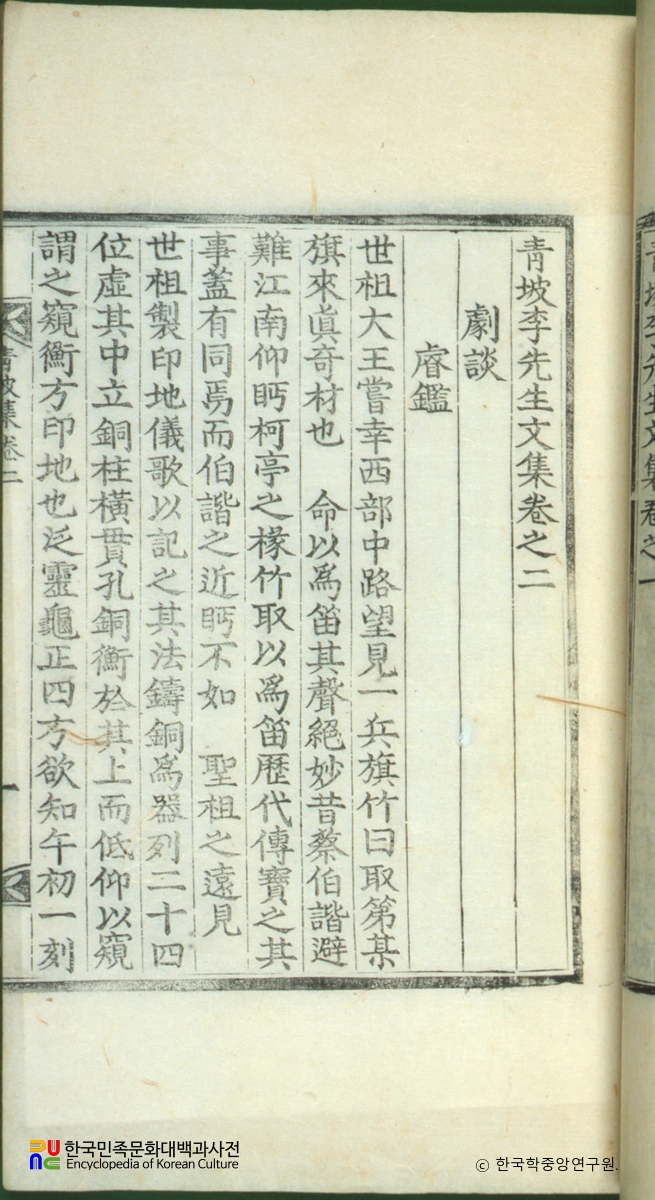 青坡李先生文集卷之二
劇談
睿鑑
世祖大王嘗幸西部中路望見一兵旗竹曰取第某
旗來眞奇材也 命以爲笛其聲絕妙昔蔡伯諧避
難江南仰眄柯亭之椽竹取以爲笛歷代傳寶之其
事蓋有同焉而伯諧之近眄不如 聖祖之遠見
世祖製印地儀歌以記之其法鑄銅爲器列二十四
位虛其中立銅柱橫貫孔銅衡於其上而低仰以窺
謂之窺衡方印地也泛靈龜正四方欲知午初一刻
青坡集卷二
一
青坡李先生文集卷之一
한국민족문화대백과사전
Encyclopedia of Korean Culture
© 한국학중앙연구원.